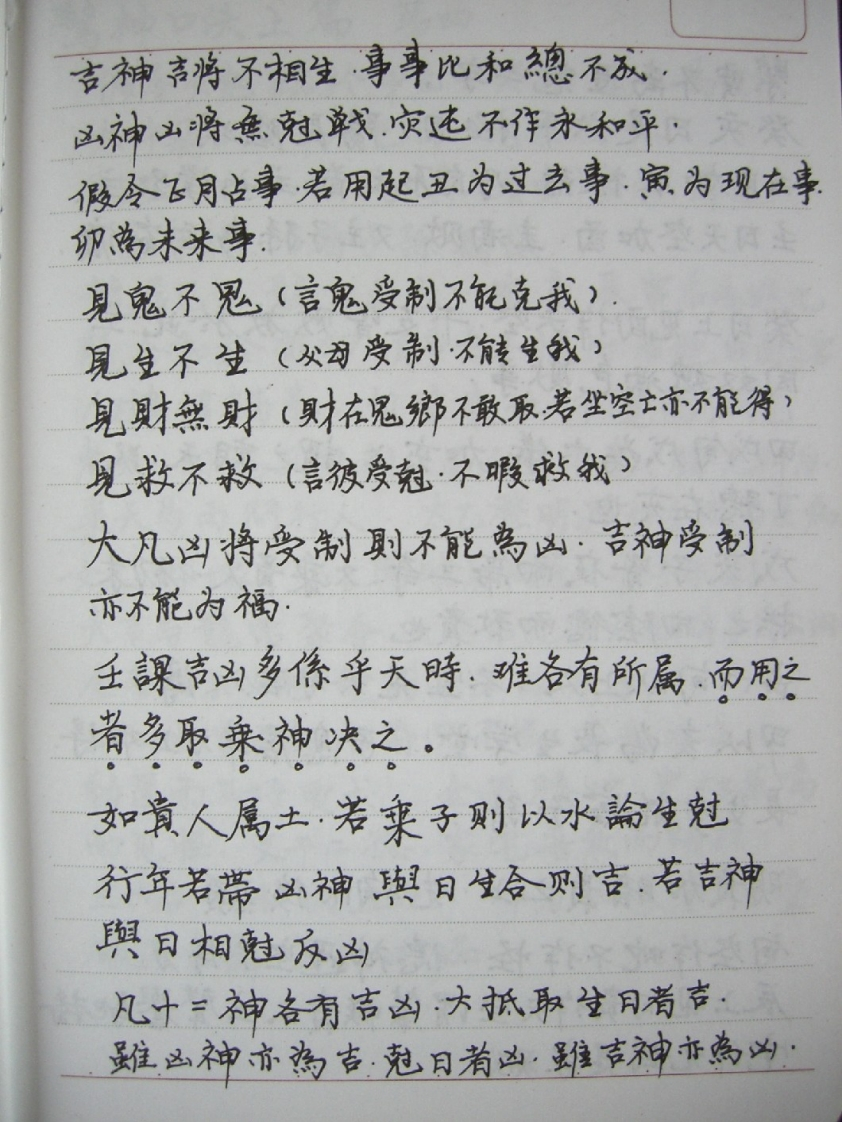 吉神吉将不相生．事事比和總不成．
凶神凶将無尅戰．灾迍不作永和平．
假令正月占事．若用起丑为过去事．寅为现在事．
卯為未来事．
見鬼不鬼（言鬼受制不能克我）．
見生不生（父母受制．不能生我）
見財無財（財在鬼鄉不敢取．若坐空亡亦不能得）
見救不救（言彼受尅．不暇救我）
大凡凶将受制則不能為凶．吉神受制
亦不能为福．
壬課吉凶多係乎天時．难各有所属．而用之
者多取乗神决之。
如貴人属土．若乗子则以水論生尅
行年若帶凶神與日生合则吉．若吉神
與日相尅反凶
凡十二神各有吉凶．大抵取生日者吉．
雖凶神亦為吉．尅日者凶．雖吉神亦為凶．